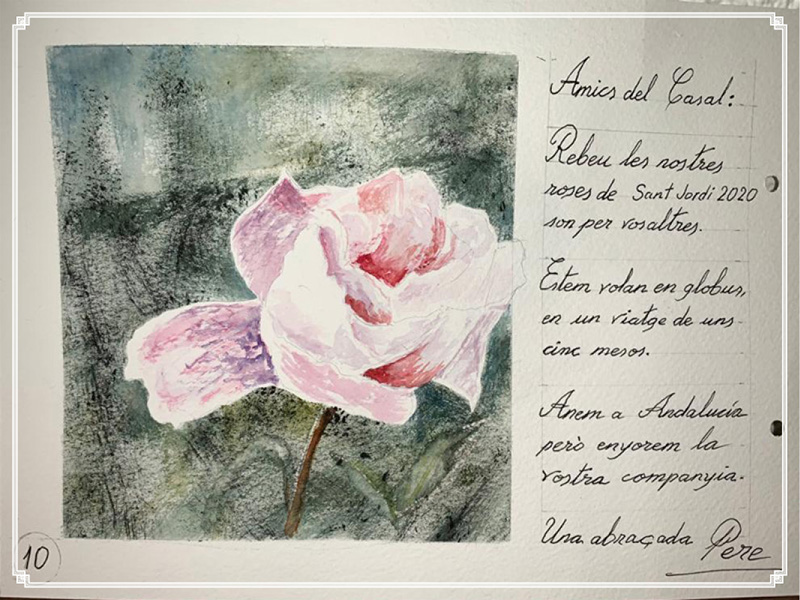 Amics del Casal:
Rebeu les nostres
roses de Sant Jordi 2020
son per vosaltres.
Estem volan en globus,
en un viatge de uns
cinc mesos.
Anem a Andalucía
però enyorem la
vostra companyia.
Una abraçada Pere
10